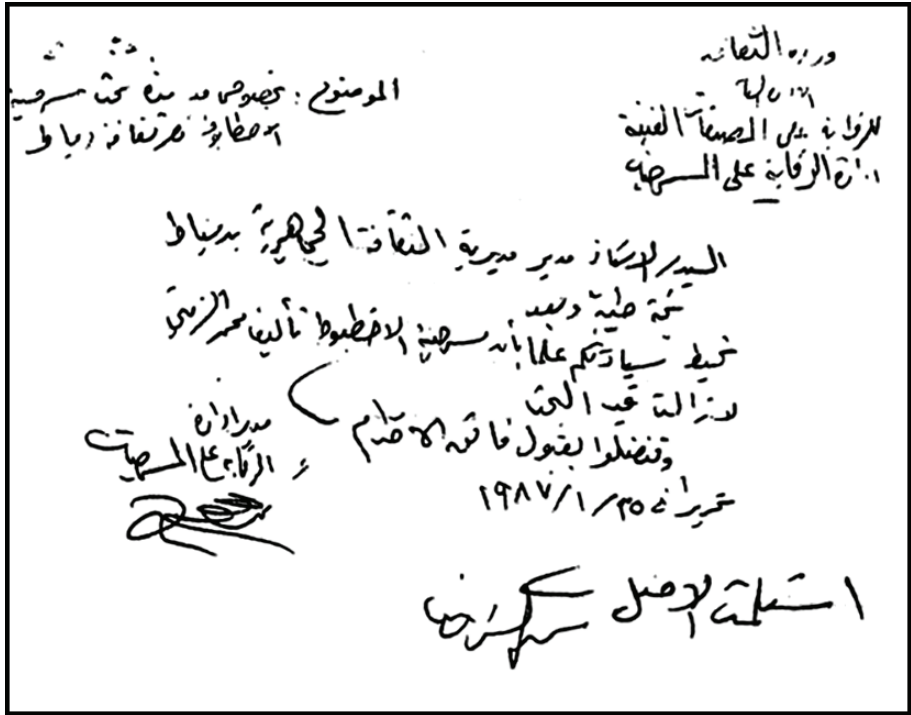 وزارة الثقافة
الإدارة العامة
للرقابة على المصنفات الفنية
إدارة الرقابة على المسرحيات
الموضوع : بخصوص مد مدة بحث مسرحية
الاخطبوط قصر ثقافة دمياط
السيد الاستاذ مدير مديرية الثقافة الجماهيرية بدمياط
تحية طيبة وبعد
نحيط سيادتكم علما بأن مسرحية الاخطبوط تأليف محمد الزيني
لازالت قيد البحث
وتفضلوا بقبول فائق الاحترام
تحريرا في ٢٥/١/١٩٨٧
مدير ادارة
الرقابة على المسرحيات
استلمت الاصل